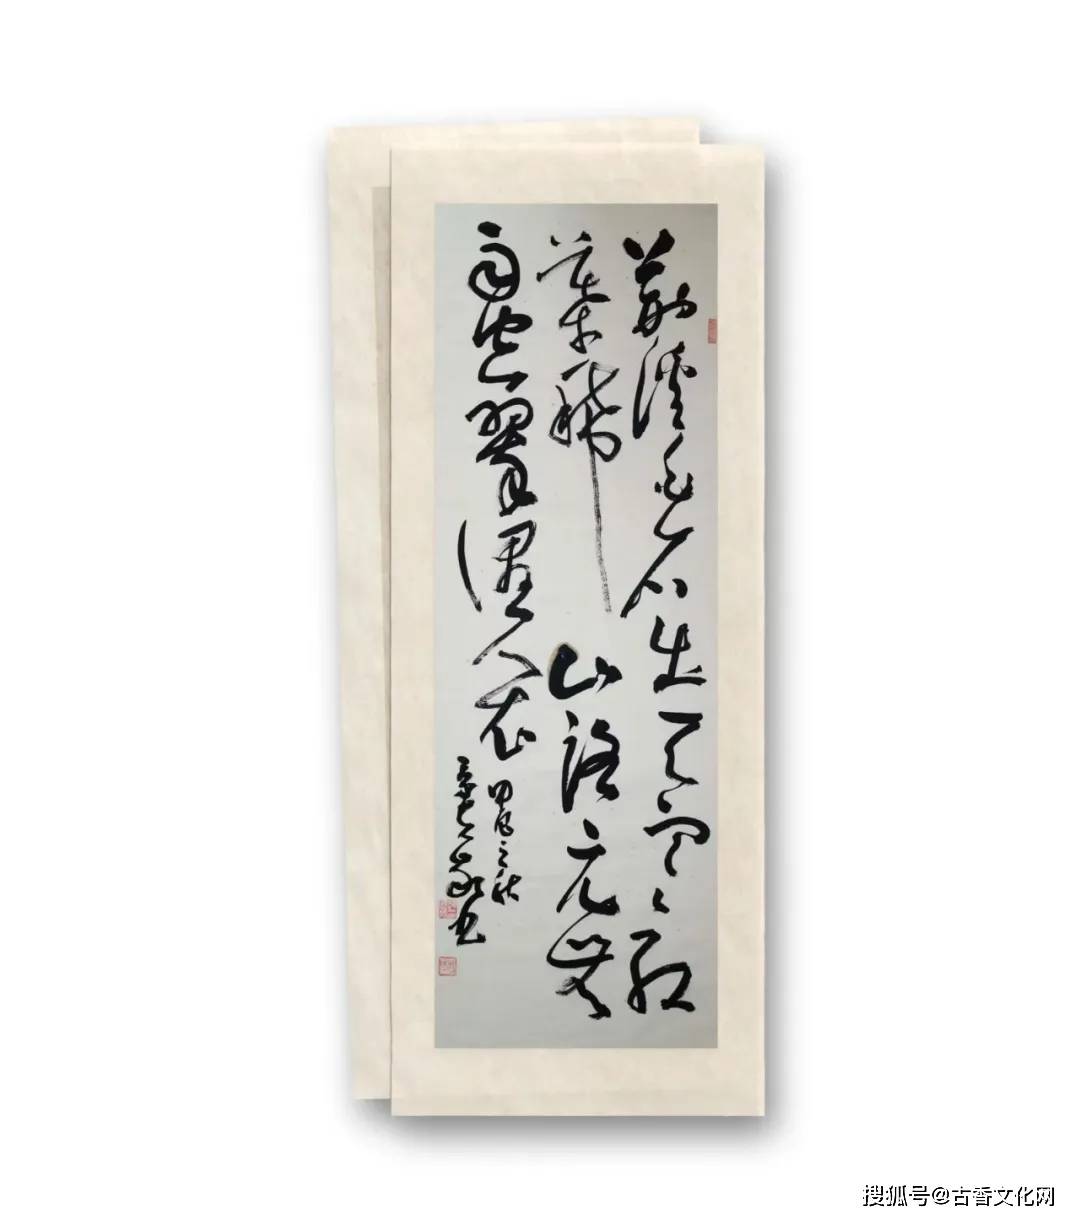 荆溪白石出天寒紅
葉稀山路元無
雨空翠濕人衣
之秋
書
搜狐号@古香文化网